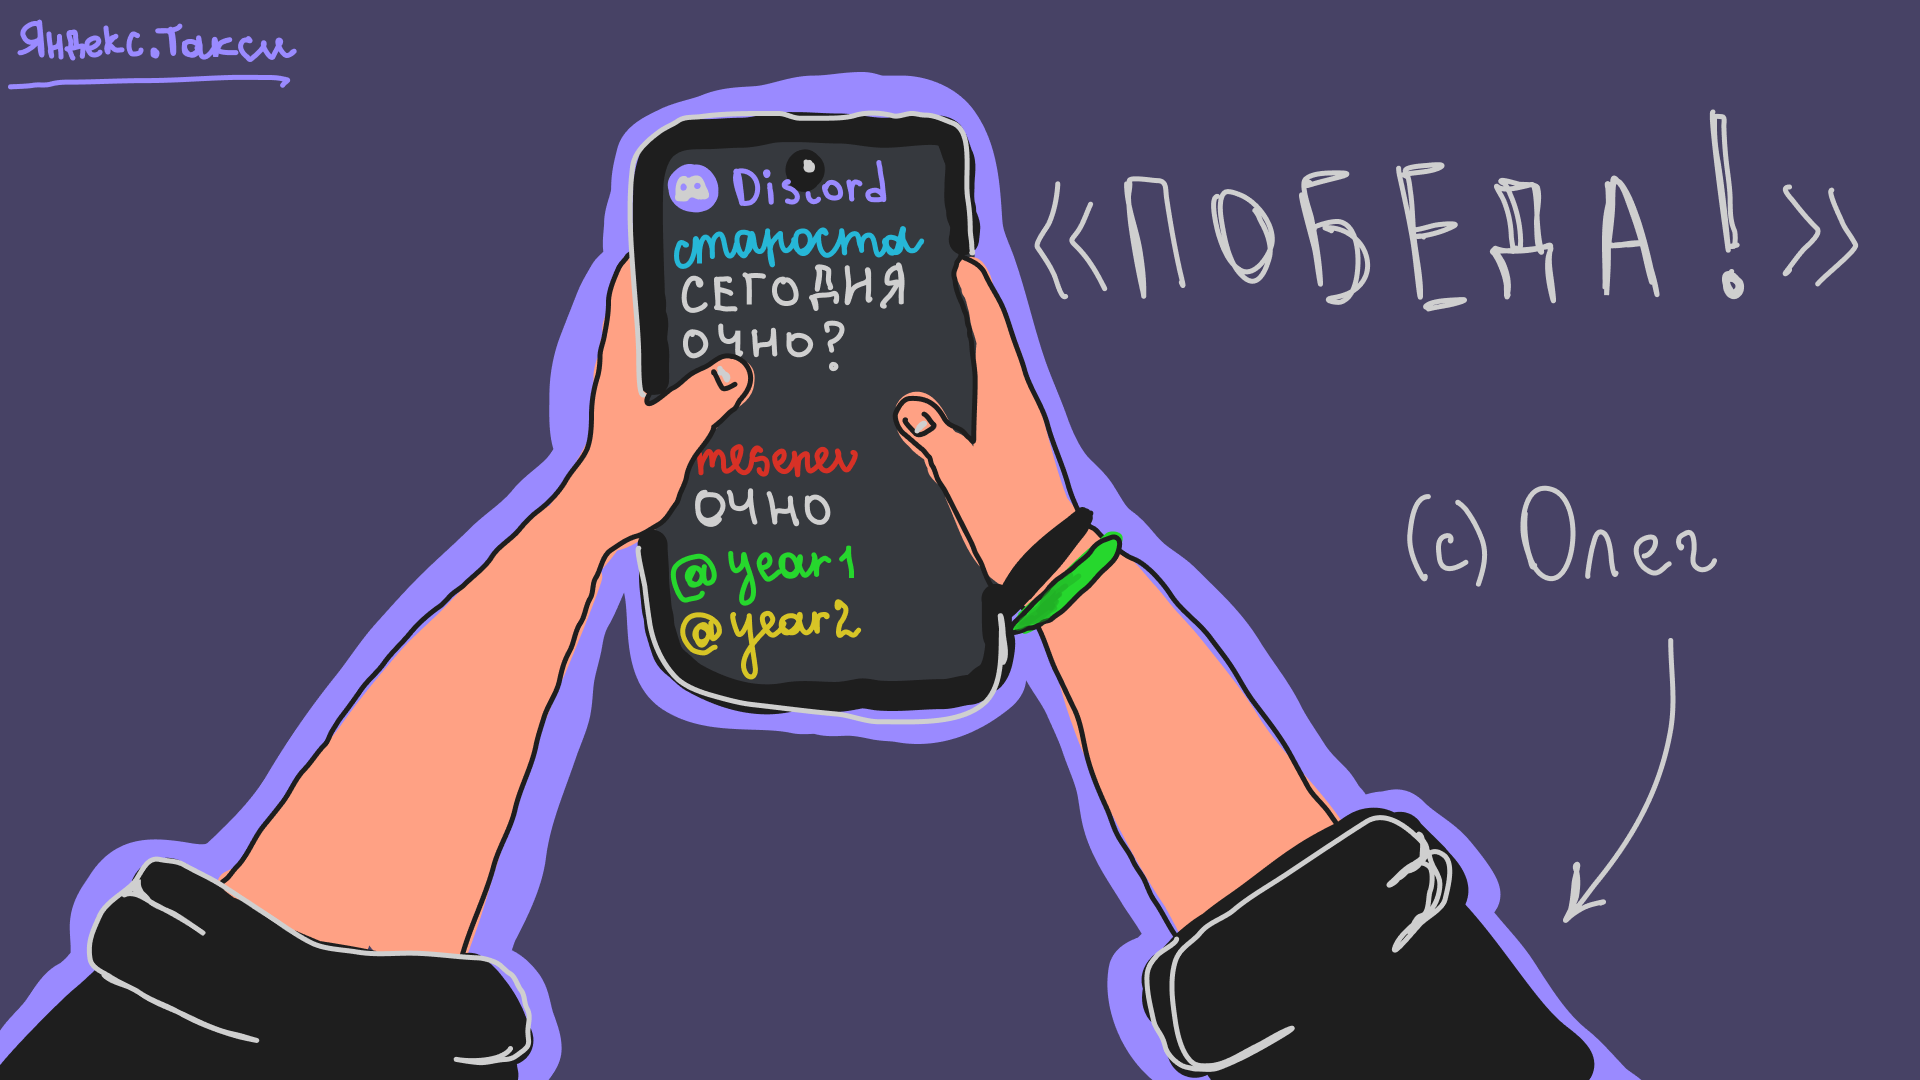 Яндекс.Такси
Discord
староста
СЕГОДНЯ
ОЧНО?
mesenev
ОЧНО
@year1
@year2
«ПОБЕДА!»
(с) Олег